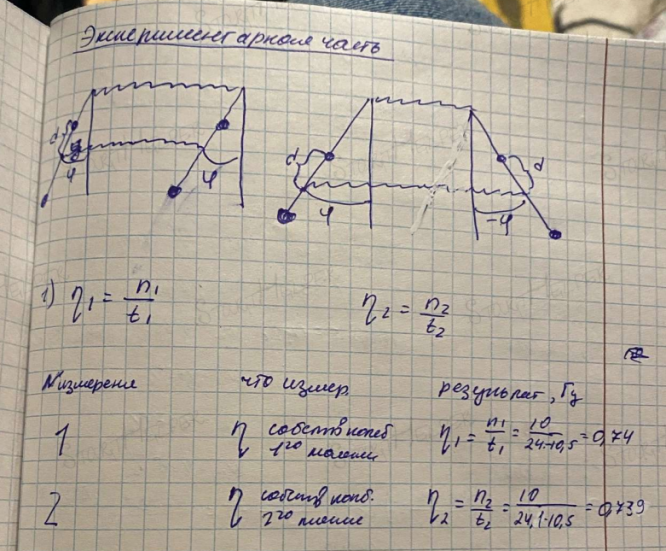 Экспериментарная часть
d φ φ d φ d -φ
1) η₁ = n₁/t₁ η₂ = n₂/t₂
№измерения что измер. результат, Гц
1 η собств колеб 1го маятн η₁ = n₁/t₁ = 10/24-10,5 = 0,74
2 η собств колб. 2го η₂ = n₂/t₂ = 10/24,1-10,5 = 0,739